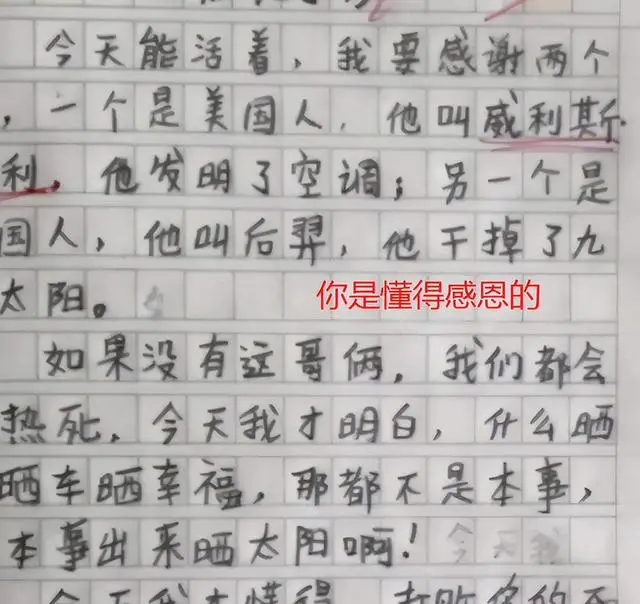 今天能活着，我要感谢两个
，一个是美国人，他叫威利斯
利，他发明了空调；另一个是
国人，他叫后羿，他干掉了九
太阳。
你是懂得感恩的
如果没有这哥俩，我们都会
热死，今天我才明白，什么晒
晒车晒幸福，那都不是本事，
本事出来晒太阳啊！
今天我才懂得，打败你的不